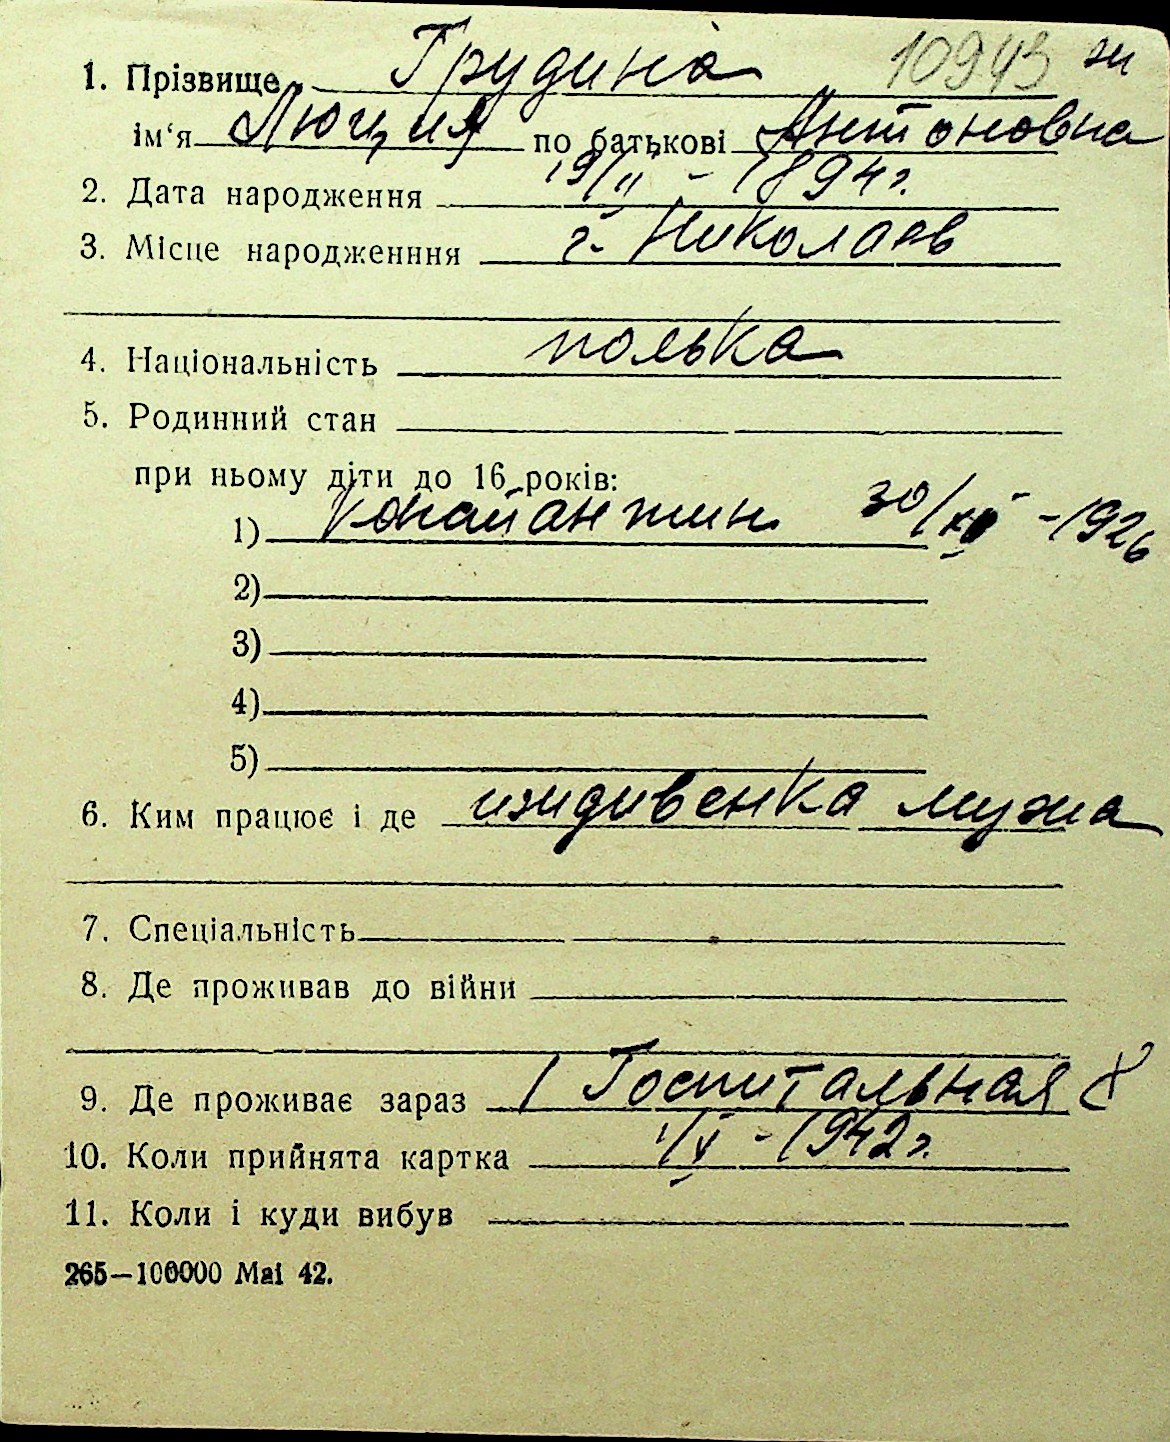 10943 ж
1. Прізвище Грудина
ім‘я Люция по батькові Антоновна
2. Дата народження 19/II - 1894 г.
3. Місце народженння г. Николаев
4. Національність полька
5. Родинний стан
при ньому діти до 16 років:
1) 30/XII - 1926
2)
3)
4)
5)
6. Ким працює і де иждивенка мужа
7. Спеціальність
8. Де проживав до війни
9. Де проживає зараз 1 Госпитальная 8
10. Коли прийнята картка 1/V - 1942 г.
11. Коли і куди вибув
265—100000 Маі 42.